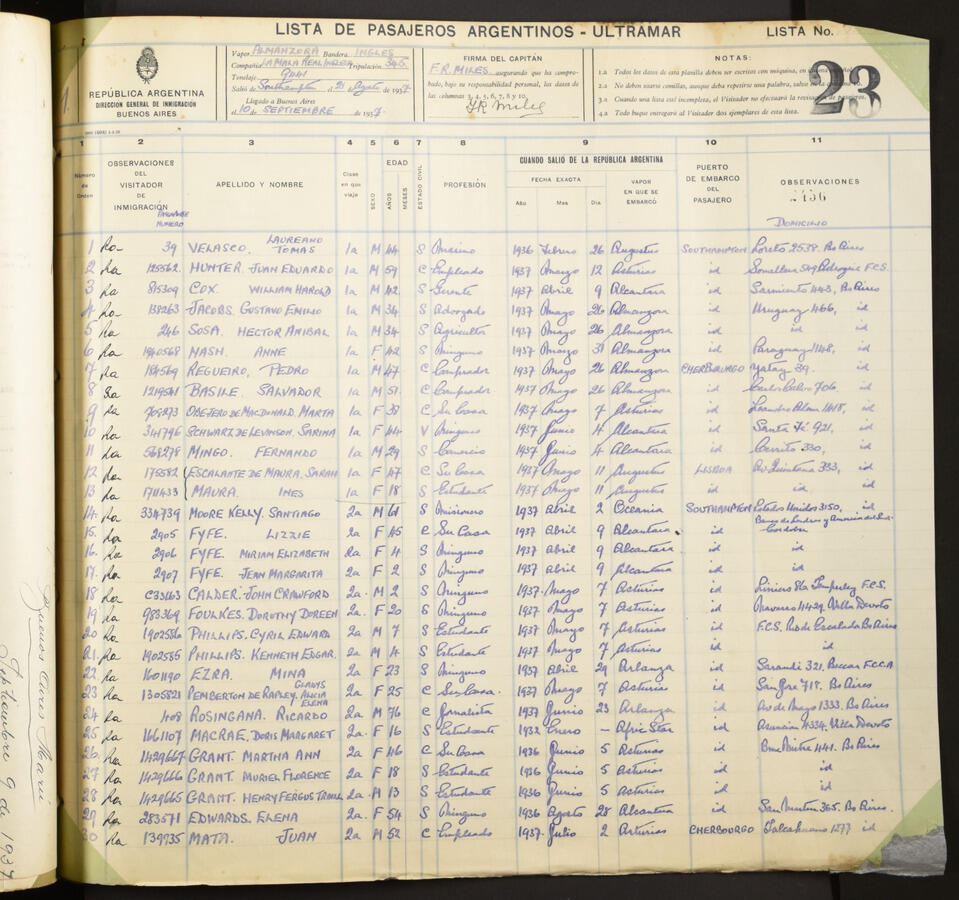 LISTA DE PASAJEROS ARGENTINOS - ULTRAMAR LISTA No.
23
1.
REPÚBLICA ARGENTINA
DIRECCIÓN GENERAL DE INMIGRACIÓN
BUENOS AIRES
Vapor ALMANZORA Bandera INGLES
Compañía LA MALA REAL INGLESA Tripulación 345
Tonelaje 9441
Salió de Southampton el 21 de Agosto de 1937
Llegado a Buenos Aires
el 10 SEPTIEMBRE de 1937.
FIRMA DEL CAPITÁN
F.R. MILES asegurando que ha comprobado, bajo su responsabilidad personal, los datos de las columnas 3, 4, 5, 6, 7, 8 y 10.
F.R. Miles
NOTAS:
1.a Todos los datos de esta planilla deben ser escritos con máquina, en
2.a No deben usarse comillas, aunque deba repetirse una palabra, salvo
3.a Cuando una lista esté incompleta, el Visitador no efectuará la
4.a Todo buque entregará al Visitador dos ejemplares de esta lista.
1 2 3 4 5 6 7 8 9 10 11
Número de Orden
OBSERVACIONES DEL VISITADOR DE INMIGRACIÓN
NUMERO
APELLIDO Y NOMBRE
Clase en que viaja
SEXO
EDAD
AÑOS
MESES
ESTADO CIVIL
PROFESIÓN
CUANDO SALIÓ DE LA REPÚBLICA ARGENTINA
FECHA EXACTA
Año Mes Dia
VAPOR EN QUE SE EMBARCÓ
PUERTO DE EMBARCO DEL PASAJERO
OBSERVACIONES
2436
DOMICILIO
1 Ra 39 VELASCO. LAUREANO TOMAS 1a M 44 S Marino 1936 Febrero 26 Augustus SOUTHAMPTON Loreto 2538. Bs Aires
2 Ra 125562 HUNTER. JUAN EDUARDO 1a M 59 C Empleado 1937 Marzo 12 Asturias id 549 Adrogue F.C.S.
3 Ra 815309 COX. WILLIAM HAROLD 1a M 42 S Gerente 1937 Abril 9 Alcantara id Sarmiento 443, Bs Aires
4 Ra 138263 JACOBS. GUSTAVO EMILIO 1a M 34 S Abogado 1937 Mayo 26 Almanzora id Uruguay 466, id
5 Ra 246 SOSA. HECTOR ANIBAL 1a M 34 S Agriculta 1937 Mayo 26 Almanzora id id id
6 Ra 1940568 MASH. ANNE 1a F 42 S Ninguno 1937 Mayo 31 Almanzora id Paraguay 1148, id
7 Ra 184569 REGUEIRO, PEDRO 1a M 47 C Comprador 1937 Mayo 26 Almanzora CHERBOURGO Yatay 39. id
8 Ra 1219541 BASILE. SALVADOR 1a M 51 C Comprador 1937 Mayo 26 Almanzora id Carlos Calvo 706, id
9 Ra 909273 OBEJERO DE MACDONALD. MARTA 1a F 38 C Su Casa 1937 Mayo 7 Asturias id Leandro Alem 1418, id
10 Ra 341796 SCHWARTZ DE LEVINSON. SARINA 1a F 44 V Ninguno 1937 Junio 4 Alcantara id Santa Fé 921, id
11 Ra 568278 MINGO. FERNANDO 1a M 29 S Comercio 1937 Junio 4 Alcantara id Cerrito 330, id
12 Ra 175582 ESCALANTE DE MAURA. SARAH 1a F 47 C Su Casa 1937 Mayo 11 Augustus LISBOA Av Quintana 333, id
13 Ra 1711433 MAURA. INES 1a F 18 S Estudiante 1937 Mayo 11 Augustus id id id
14 Ra 334739 MOORE KELLY. SANTIAGO 2a M 61 S Misionero 1937 Abril 2 Oceania SOUTHAMPTON Estados Unidos 3150, id
15. Ra 2905 FYFE. LIZZIE 2a F 45 C Su Casa 1937 Abril 9 Alcantara id Banco de Londres y America del Sud Cordoba
16. Ra 2906 FYFE. MIRIAM ELIZABETH 2a F 4 S Ninguno 1937 Abril 9 Alcantara id id
17. Ra 2907 FYFE. JEAN MARGARITA 2a F 2 S Ninguno 1937 Abril 9 Alcantara id id
18 Ra C33163 CALDER. JOHN CRAWFORD 2a. M 2 S Ninguno 1937 Mayo 7 Asturias id Liniers 86 Temperley F.C.S.
19 Ra 985369 FOULKES. DOROTHY DOREEN 2a. F 20 S Ninguno 1937 Mayo 7 Asturias id Navarro 4429. Villa Devoto
20 Ra 1902586 PHILLIPS. CYRIL EDWARD 2a M 7 S Estudiante 1937 Mayo 7 Asturias id F.C.S. R. de Escalada Bs Aires
21. Ra 1902585 PHILLIPS. KENNETH EDGAR. 2a M 4 S Estudiante 1937 Mayo 7 Asturias id id
22 Ra 1601190 EZRA. MINA 2a F 23 S Ninguno 1937 Abril 29 Arlanza id Sarandi 321. Beccar F.C.C.A
23 Ra 1305821 PEMBERTON DE RAPLEY. GLADYS ALICIA ELENA 2a F 25 C Su Casa. 1937 Mayo 7 Asturias id San Jose 718. Bs Aires
24 Ra 408 ROSINGANA. RICARDO 2a M 76 C Jornalista 1937 Junio 23 Arlanza id Av de Mayo 1333. Bs Aires
25 Ra 1661107 MACRAE. DORIS MARGARET 2a. F 16 S Estudiante 1932 Enero — Afric Star id Asuncion 4334. Villa Devoto
26. Ra 1429667 GRANT. MARTHA ANN 2a F 46 C Su Casa 1936 Junio 5 Asturias id Bme Mitre 441. Bs Aires
27 Ra 1429666 GRANT. MURIEL FLORENCE 2a F 18 S Estudiante 1936 Junio 5 Asturias id id
28 Ra 1429665 GRANT. HENRY FERGUS 2a M 13 S Estudiante 1936 Junio 5 Asturias id id
29 Ra 283571 EDWARDS. ELENA 2a. F 54 S Ninguno 1936 Agosto 28 Alcantara id San Martin 365. Bs Aires.
30 Ra 139935 MATA. JUAN 2a M 52 C Empleado 1937 Julio 2 Asturias CHERBOURGO Talcahuano 1277 id
Buenos Aires
Septiembre 9 de 1937